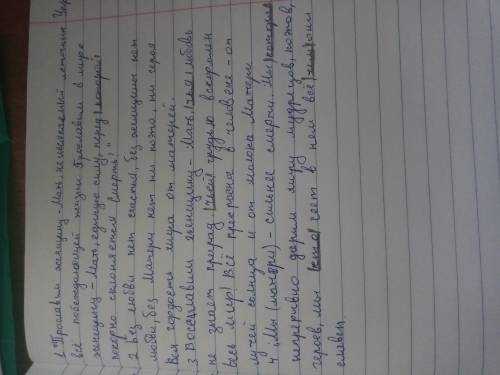 1. "Прославим женщину - Мать, неиссякаемый источник Упр
всё побеждающей жизни. Прославим в мире
женщину - Мать, единую силу, перед которой
покорно склоняется смерть!"
2 Без любви нет счастья, без женщины нет
любви, без Матери нет ни поэта, ни героя
Вся гордость мира от матерей.
3. Восславим женщину - Мать, чья любовь
не знает преград. Чьей грудью вскормлен
весь мир! Всё прекрасное в человеке - от
лучей солнца и от молока Матери
4. "Мы (матери) - сильнее смерти. Мы, которые
непрерывно дарим миру мудрецов, поэтов,
героев, мы кто сеет в нём всё, чем они
славен